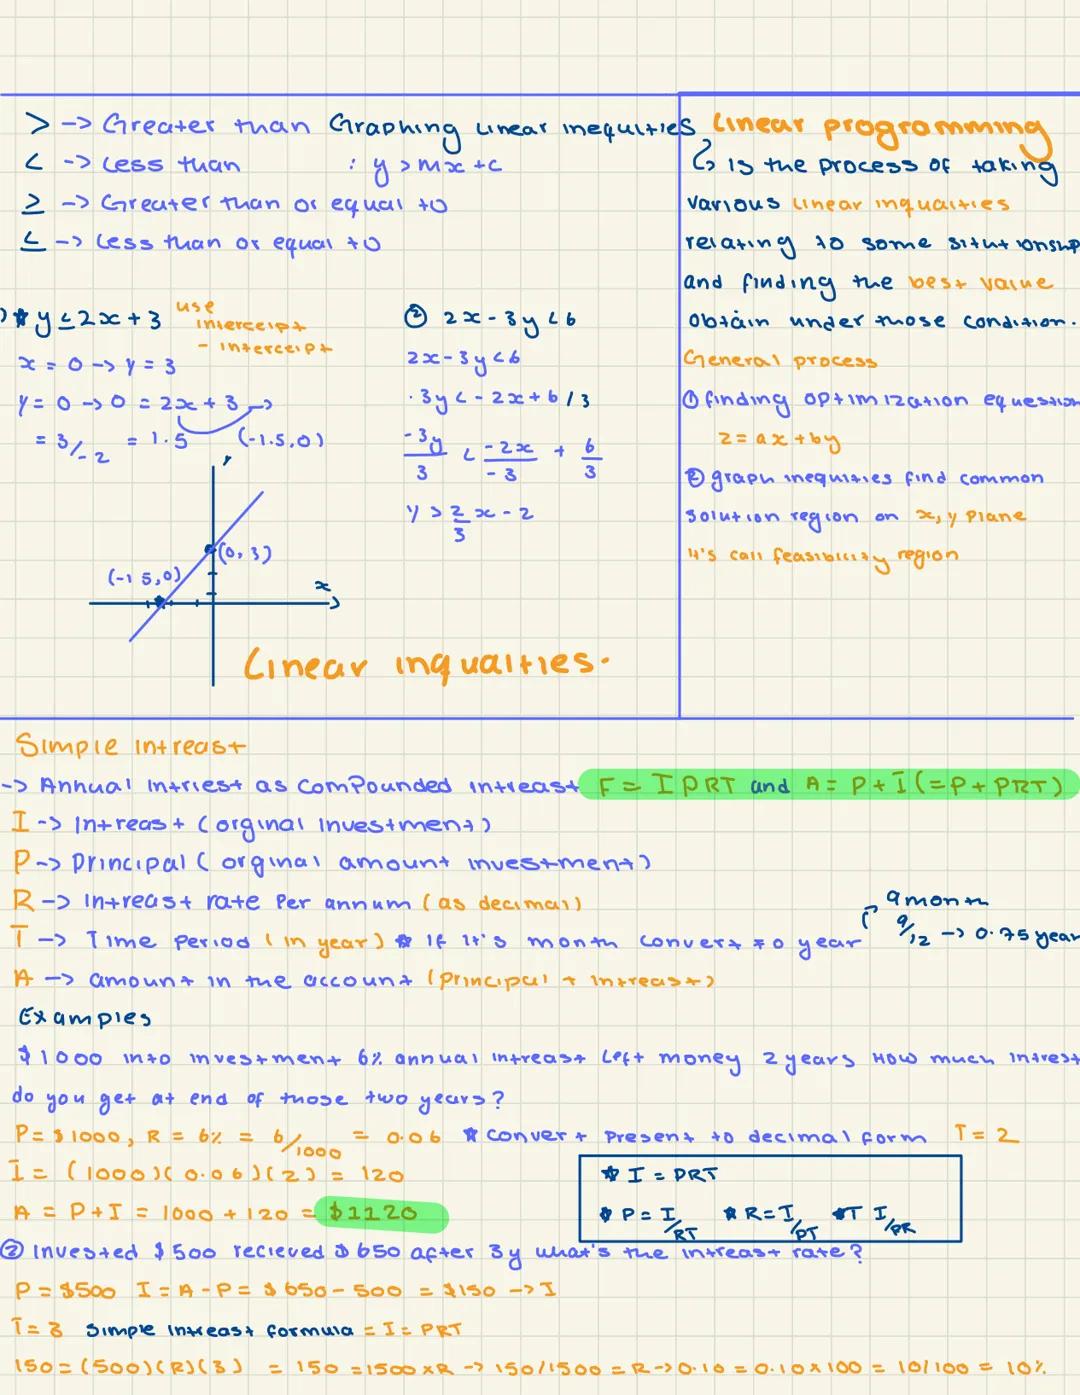 > -> Greater than Graphing Linear inequlties
< -> Less than : y > mx + c
≥ -> Greater than or equal to
≤ -> Less than or equal to
y ≤ 2x + 3 use
interceipt
- interceipt
x = 0 -> y = 3
y = 0 -> 0 = 2x + 3 ->
= 3/-2 = 1.5 (-1.5,0)
(0, 3)
(-1 5,0)
x
② 2x - 3y < 6
2x - 3y < 6
- 3y < - 2x + 6 / 3
-3y/3 < -2x/-3 + 6/3
y > 2/3 x - 2
Linear inqualties.
Linear programming
is the process of taking
various Linear inqualties
relating to some situtionship
and finding the best value
obtain under those condition.
General process
① finding optimization equestion
z = ax + by
② graph inequities find common
solution region on x, y plane
it's call feasibility region
Simple intreast
-> Annual intriest as compounded intreast F = I PRT and A = P + I (= P + PRT)
I -> Intreast (orginal investment)
P -> principal (orginal amount investment)
R -> Intreast rate per annum (as decimal)
9 month
T -> Time period (in year) * If it's month convert to year 9/12 -> 0.75 year
A -> amount in the account (principal + intreast)
Examples
$1000 into investment 6% annual intreast Left money 2 years How much intrest
do you get at end of those two years?
P = $1000, R = 6% = 6/1000 = 0.06 * convert present to decimal form T = 2
I = (1000)(0.06)(2) = 120
A = P + I = 1000 + 120 = $1120
* I = PRT
* P = I/RT * R = I/PT * T I/PR
② Invested $500 recieved $650 after 3y what's the intreast rate?
P = $500 I = A - P = $650 - 500 = $150 -> I
T = 3 simple intreast formula = I = PRT
150 = (500)(R)(3) = 150 = 1500 x R -> 150/1500 = R -> 0.10 = 0.10 x 100 = 10/100 = 10%